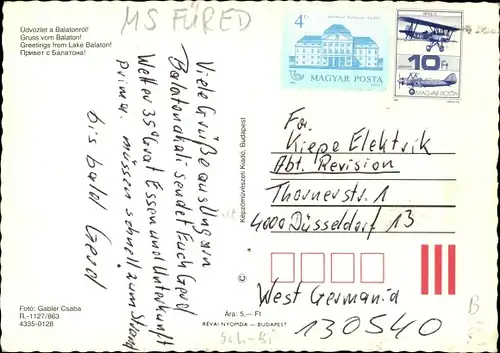 MS FÜRED
Üdvözlet a Balatonról!
Gruss vom Balaton!
Greetings from Lake Balaton!
Привет с Балатона!
Viele Grüße aus Ungarn
Balatonakali sendet Euch Gerd
Wetter 35° Grat Essen und Unterkunft
prima. müssen schnell zum Strand
bis bald Gerd
Fotó: Gabler Csaba
R.-1127/863
4335-0128
Ára: 5.— Ft
RÉVAI NYOMDA — BUDAPEST
Képzőművészeti Kiadó, Budapest
4 Ft
MAGYAR POSTA
10 Ft
MAGYAR POSTA
Fa.
Kiepe Elektrik
Abt. Revision
Thornerstr. 1
4000 Düsseldorf 13
West Germania
130540
B